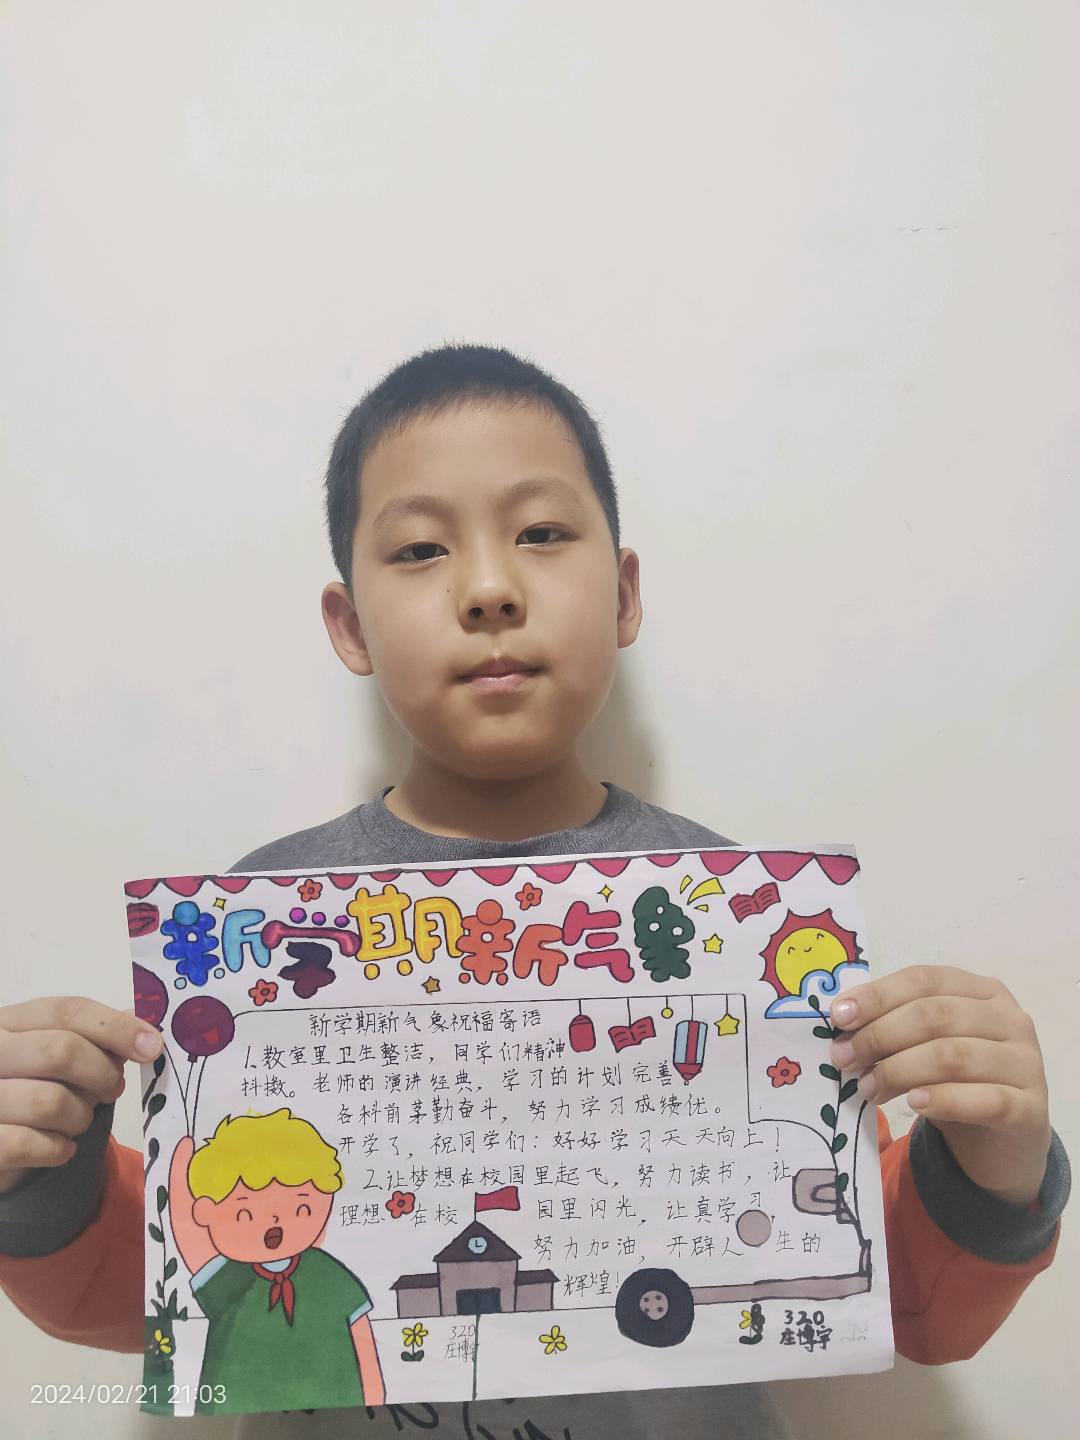 新学期新气象
新学期新气象祝福寄语
1.教室里卫生整洁，同学们精神
抖擞。老师的演讲经典，学习的计划完善。
各科前茅勤奋斗，努力学习成绩优。
开学了，祝同学们：好好学习天天向上！
2.让梦想在校园里起飞，努力读书，让
理想在校园里闪光，让真学习，
努力加油，开辟人生的
辉煌！
320
庄博宇
320
庄博宇
2024/02/21 21:03